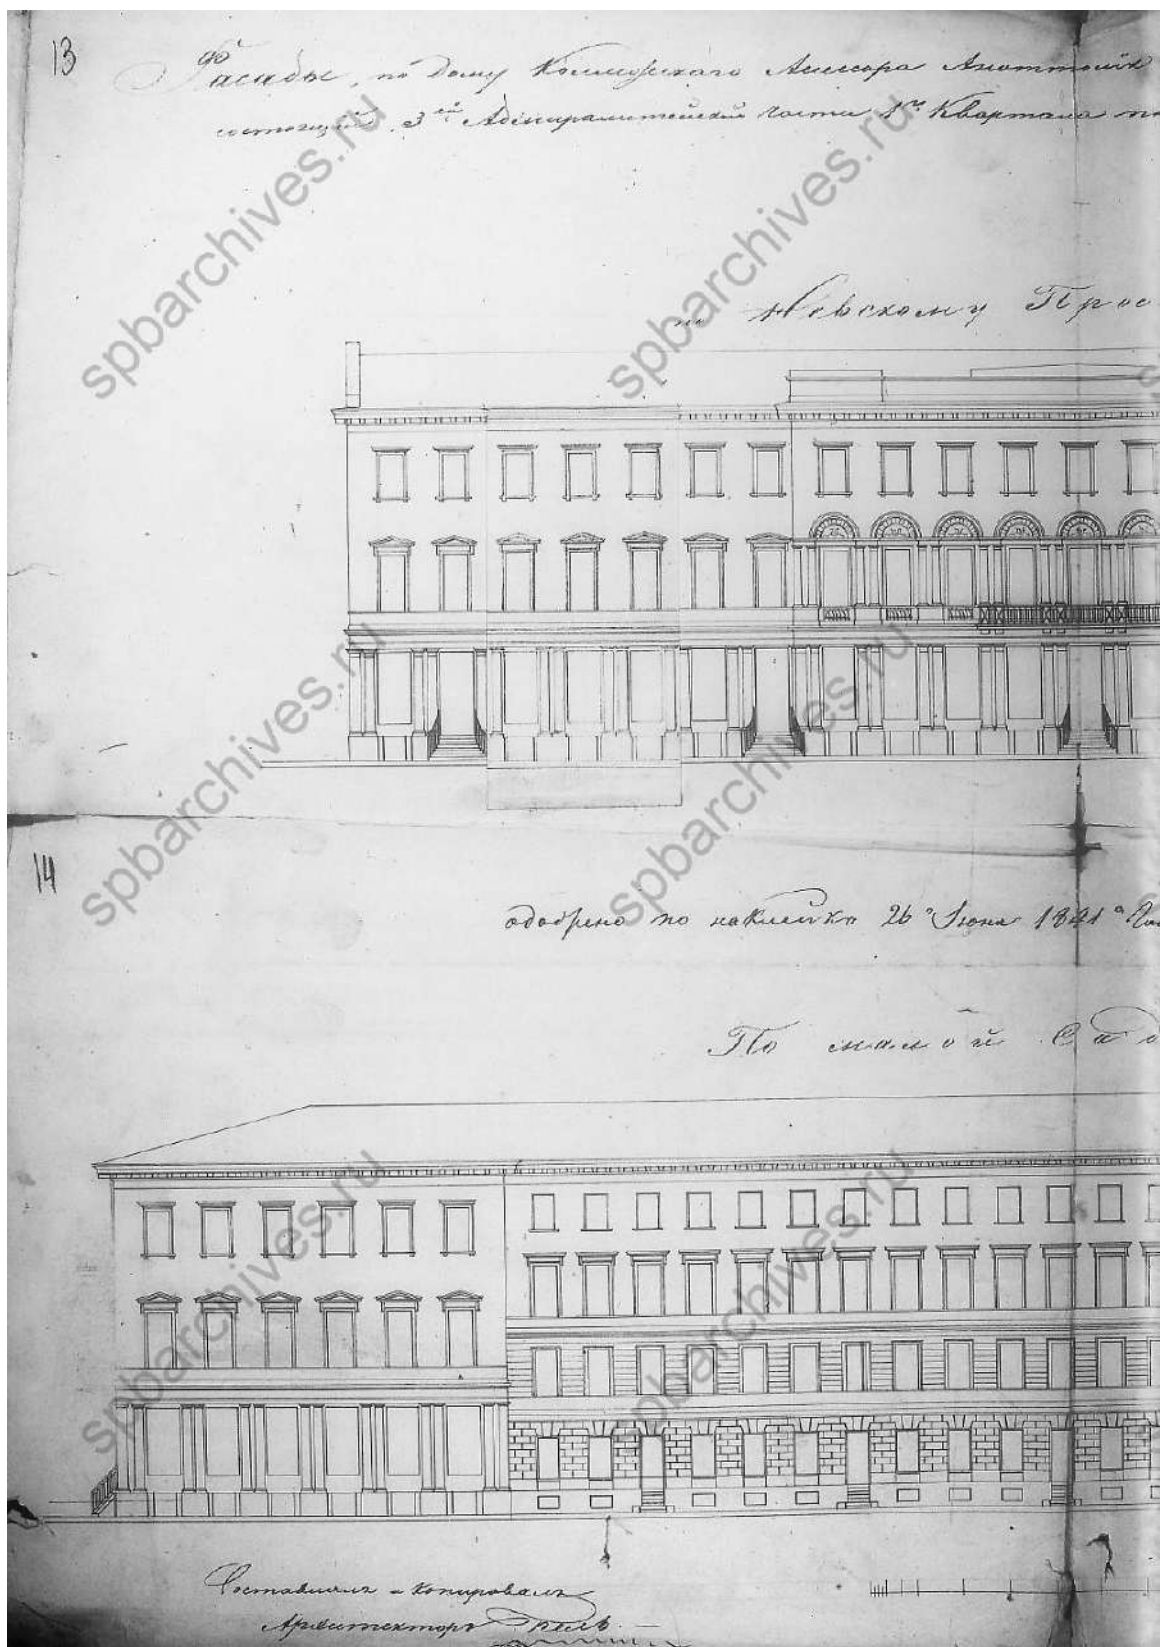 13
Фасады, по дому Коллежскаго Ассесора
состоящей 3ей Адмиралтейской части 1го Квартала по
по Невскому Прос
14
одобрено по наклейке 26го Июня 1841го
По малой Сад
Составилъ и копировалъ
Архитекторъ
spbarchives.ru
spbarchives.ru
spbarchives.ru
spbarchives.ru
spbarchives.ru
spbarchives.ru